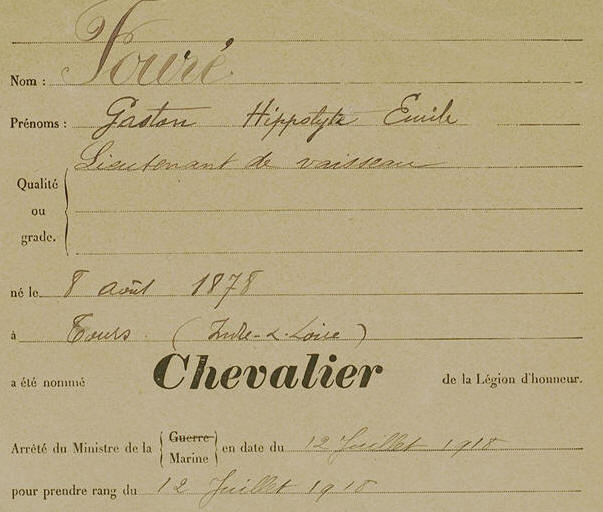 Nom : Fouré
Prénoms : Gaston Hippolyte Emile
Lieutenant de vaisseau
Qualité
ou
grade.
né le 8 août 1878
à Tours (Indre-&-Loire)
a été nommé Chevalier de la Légion d'honneur.
Arrêté du Ministre de la Guerre Marine en date du 12 Juillet 1918
pour prendre rang du 12 Juillet 1918